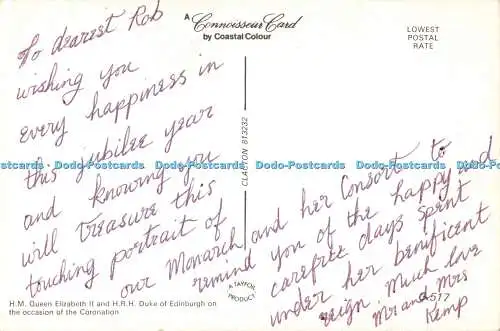 To dearest Rob
wishing you
every happiness in
this jubilee year
and knowing you
will treasure this
touching portrait of
our Monarch and her Consort to
remind you of the happy and
carefree days spent
under her beneficent
reign. Much love
Mr and Mrs
Kemp
A
Connoisseur Card
by Coastal Colour
LOWEST
POSTAL
RATE
CLACTON 813232
Dodo-Postcards Dodo-Postcards Dodo-Postcards Dodo-Postcards Dodo-Postcards Dodo-Postcards
H.M. Queen Elizabeth II and H.R.H. Duke of Edinburgh on
the occasion of the Coronation
A TAYFOR
PRODUCT